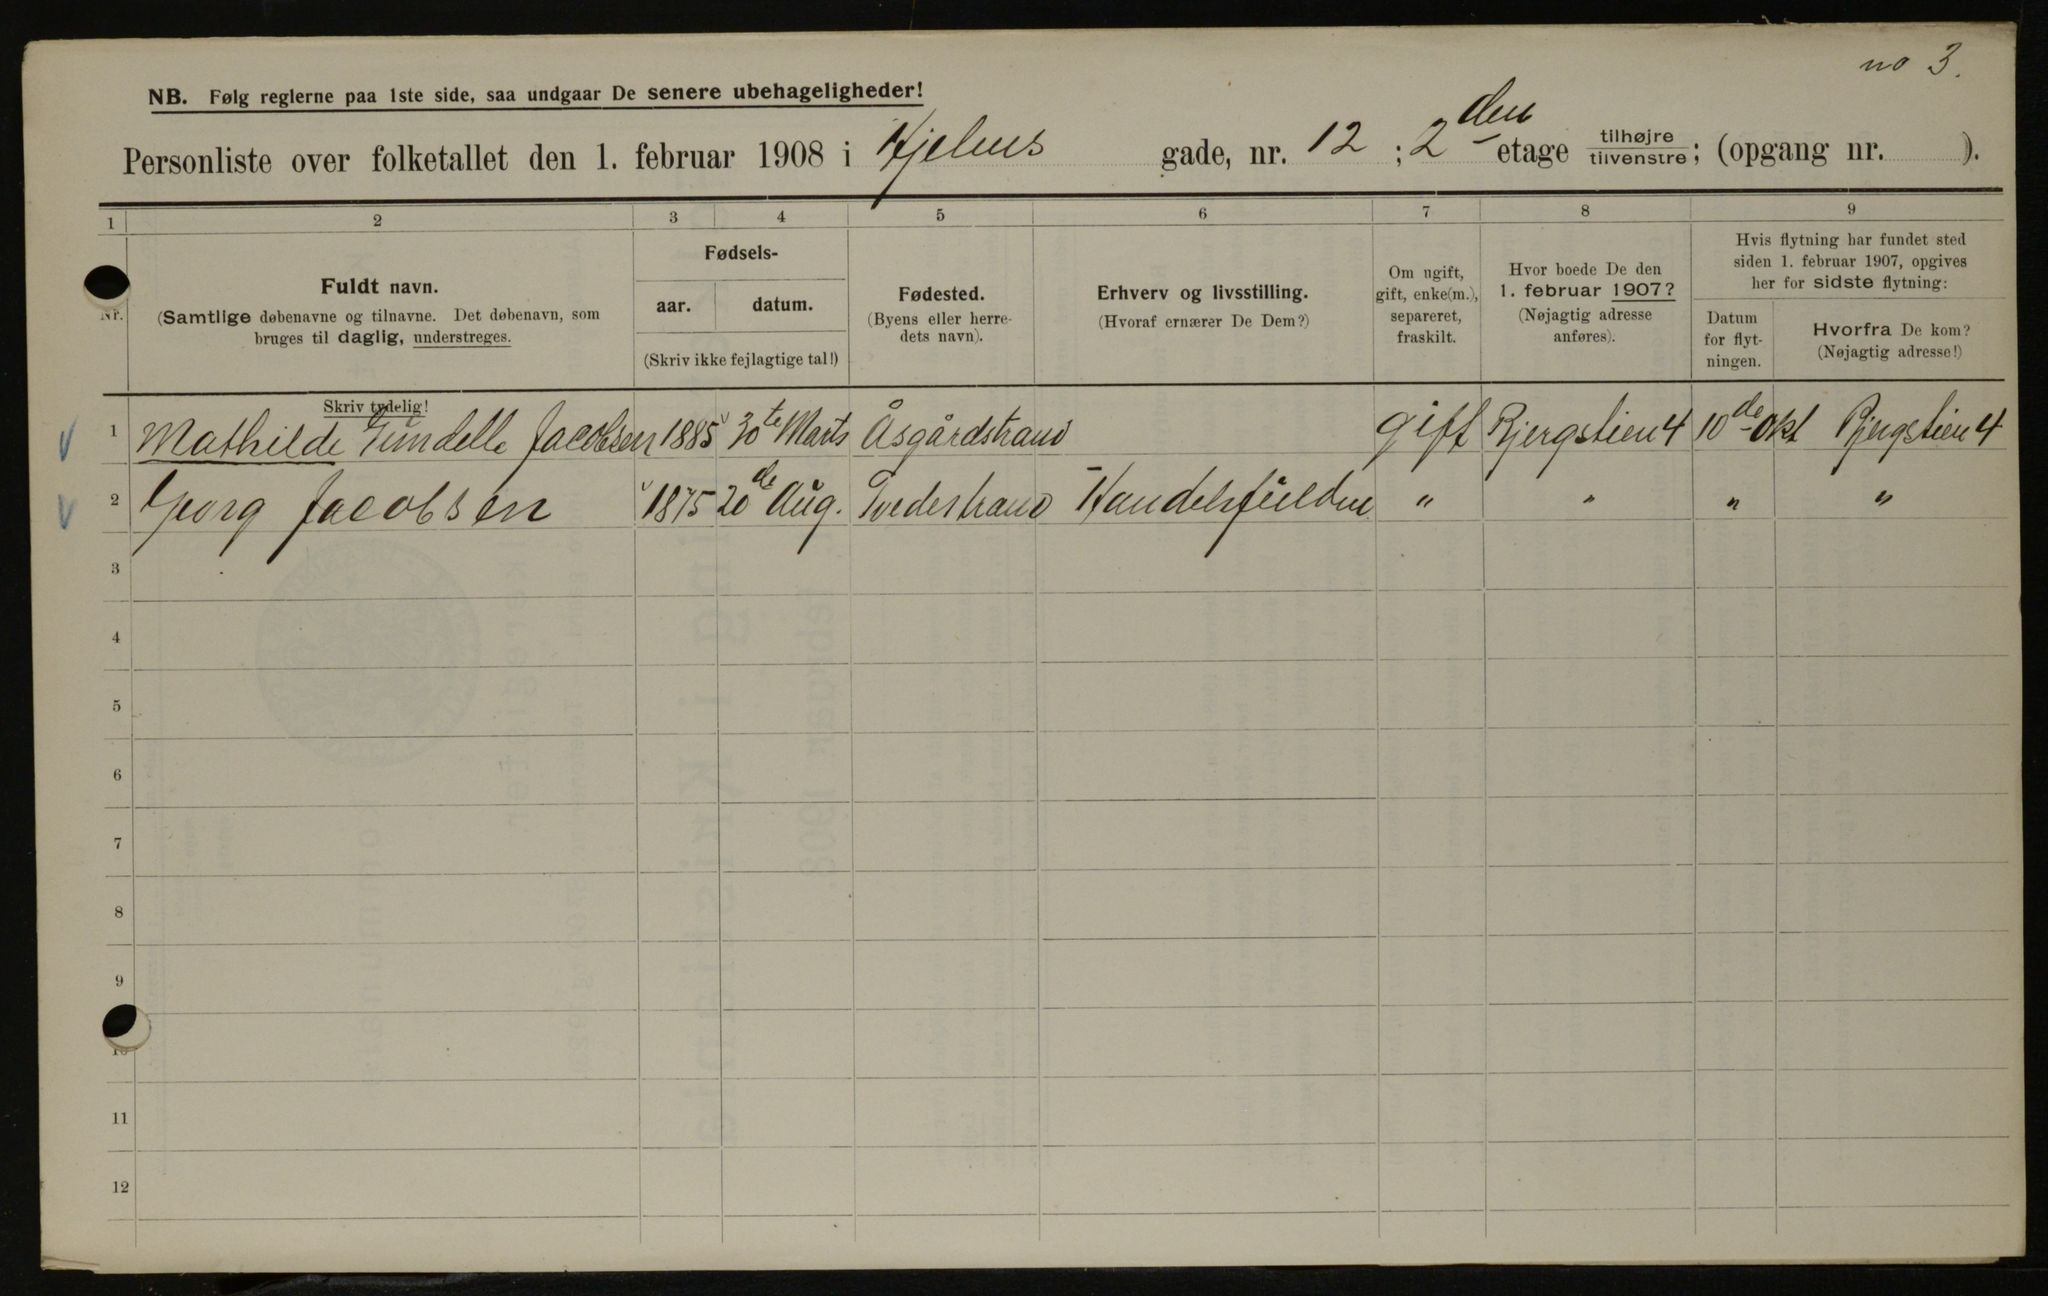 no 3.
NB. Følg reglerne paa 1ste side, saa undgaar De senere ubehageligheder!
Personliste over folketallet den 1. februar 1908 i Hjelms gade, nr. 12 ; 2den etage tilhøjre/tilvenstre; (opgang nr. ).
1 2 3 4 5 6 7 8 9
Nr.
Fuldt navn.
(Samtlige døbenavne og tilnavne. Det døbenavn, som
bruges til daglig, understreges.
Skriv tydelig!
Fødsels-
aar. datum.
(Skriv ikke fejlagtige tal!)
Fødested.
(Byens eller herre-
dets navn).
Erhverv og livsstilling.
(Hvoraf ernærer De Dem?)
Om ugift,
gift, enke(m.),
separeret,
fraskilt.
Hvor boede De den
1. februar 1907?
(Nøjagtig adresse
anføres).
Hvis flytning har fundet sted
siden 1. februar 1907, opgives
her for sidste flytning:
Datum
for flyt-
ningen.
Hvorfra De kom?
(Nøjagtig adresse!)
1 Mathilde Jacobsen 1885 30te Marts Åsgårdstrand gift Bjergstien 4 10de Okt Bjergstien 4
2 Georg Jacobsen 1875 20de Aug. Tvedestrand " " " "
3
4
5
6
7
8
9
10
11
12